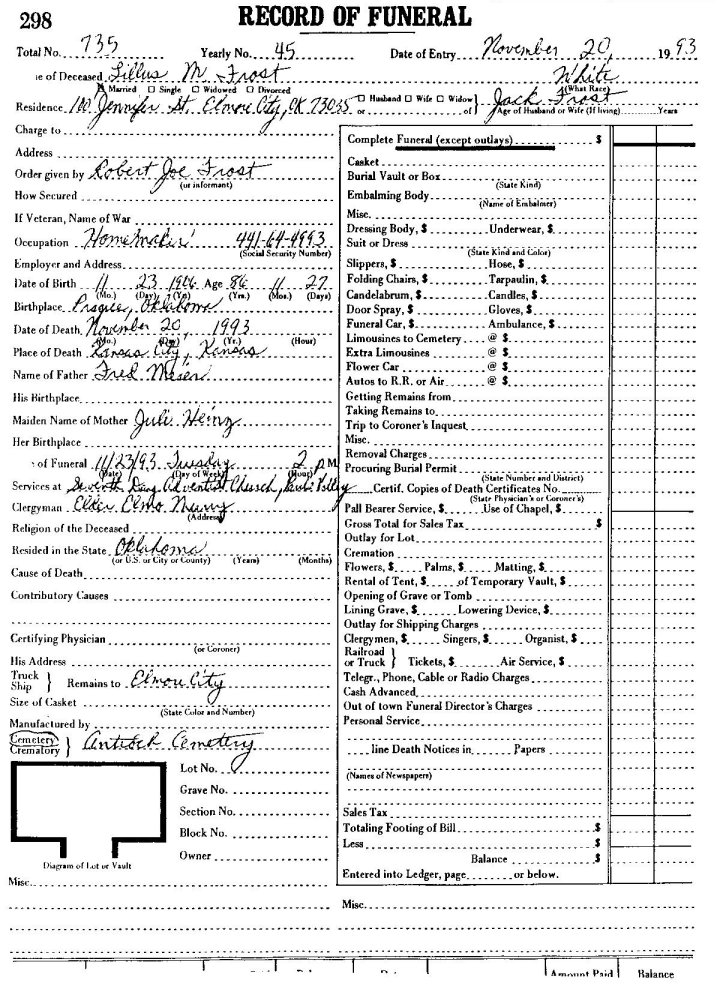 298 RECORD OF FUNERAL
Total No. 735 Yearly No. 45 Date of Entry November 20, 1993
e of Deceased Lillus M Frost White
Married □ Single □ Widowed □ Divorced (What Race)
Residence 100 Jennifer St. Elmore City, OK 73035 or □ Husband □ Wife □ Widow of Jack Frost
(Age of Husband or Wife (If living) Years
Charge to
Address
Order given by Robert Joe Frost
(or informant)
How Secured
If Veteran, Name of War
Occupation Homemaker 441-64-4993
(Social Security Number)
Employer and Address
Date of Birth 11 23 1906 Age 86 11 27
(Mo.) (Day) (Yr.) (Yrs.) (Mos.) (Days)
Birthplace Prague, Oklahoma
Date of Death November 20, 1993
(Mo.) (Day) (Yr.) (Hour)
Place of Death Kansas City, Kansas
Name of Father Fred Meser
His Birthplace
Maiden Name of Mother Juli Heinz
Her Birthplace
of Funeral 11/23/93 Tuesday 2 P M
(Date) (Day of Week) (Hour)
Services at Seventh Day Adventist Church, Pauls Valley
Clergyman Elder Elmo
(Address)
Religion of the Deceased
Resided in the State Oklahoma
(or U.S. or City or County) (Years) (Months)
Cause of Death
Contributory Causes
Certifying Physician
(or Coroner)
His Address
Truck
Ship } Remains to Elmore City
Size of Casket
(State Color and Number)
Manufactured by
Cemetery
Crematory } Antioch Cemetery
Lot No.
Grave No.
Section No.
Block No.
Owner
Diagram of Lot or Vault
Misc.
Complete Funeral (except outlays) $
Casket
Burial Vault or Box
(State Kind)
Embalming Body
(Name of Embalmer)
Misc.
Dressing Body, $ Underwear, $
Suit or Dress
(State Kind and Color)
Slippers, $ Hose, $
Folding Chairs, $ Tarpaulin, $
Candelabrum, $ Candles, $
Door Spray, $ Gloves, $
Funeral Car, $ Ambulance, $
Limousines to Cemetery @ $
Extra Limousines @ $
Flower Car @ $
Autos to R.R. or Air @ $
Getting Remains from
Taking Remains to
Trip to Coroner's Inquest
Misc.
Removal Charges
Procuring Burial Permit
(State Number and District)
Certif. Copies of Death Certificates No.
(State Physician's or Coroner's)
Pall Bearer Service, $ Use of Chapel, $
Gross Total for Sales Tax $
Outlay for Lot
Cremation
Flowers, $ Palms, $ Matting, $
Rental of Tent, $ of Temporary Vault, $
Opening of Grave or Tomb
Lining Grave, $ Lowering Device, $
Outlay for Shipping Charges
Clergymen, $ Singers, $ Organist, $
Railroad
or Truck } Tickets, $ Air Service, $
Telegr., Phone, Cable or Radio Charges
Cash Advanced
Out of town Funeral Director's Charges
Personal Service
line Death Notices in Papers
(Names of Newspapers)
Sales Tax
Totaling Footing of Bill $
Less $
Balance $
Entered into Ledger, page or below.
Misc.
Amount Paid Balance